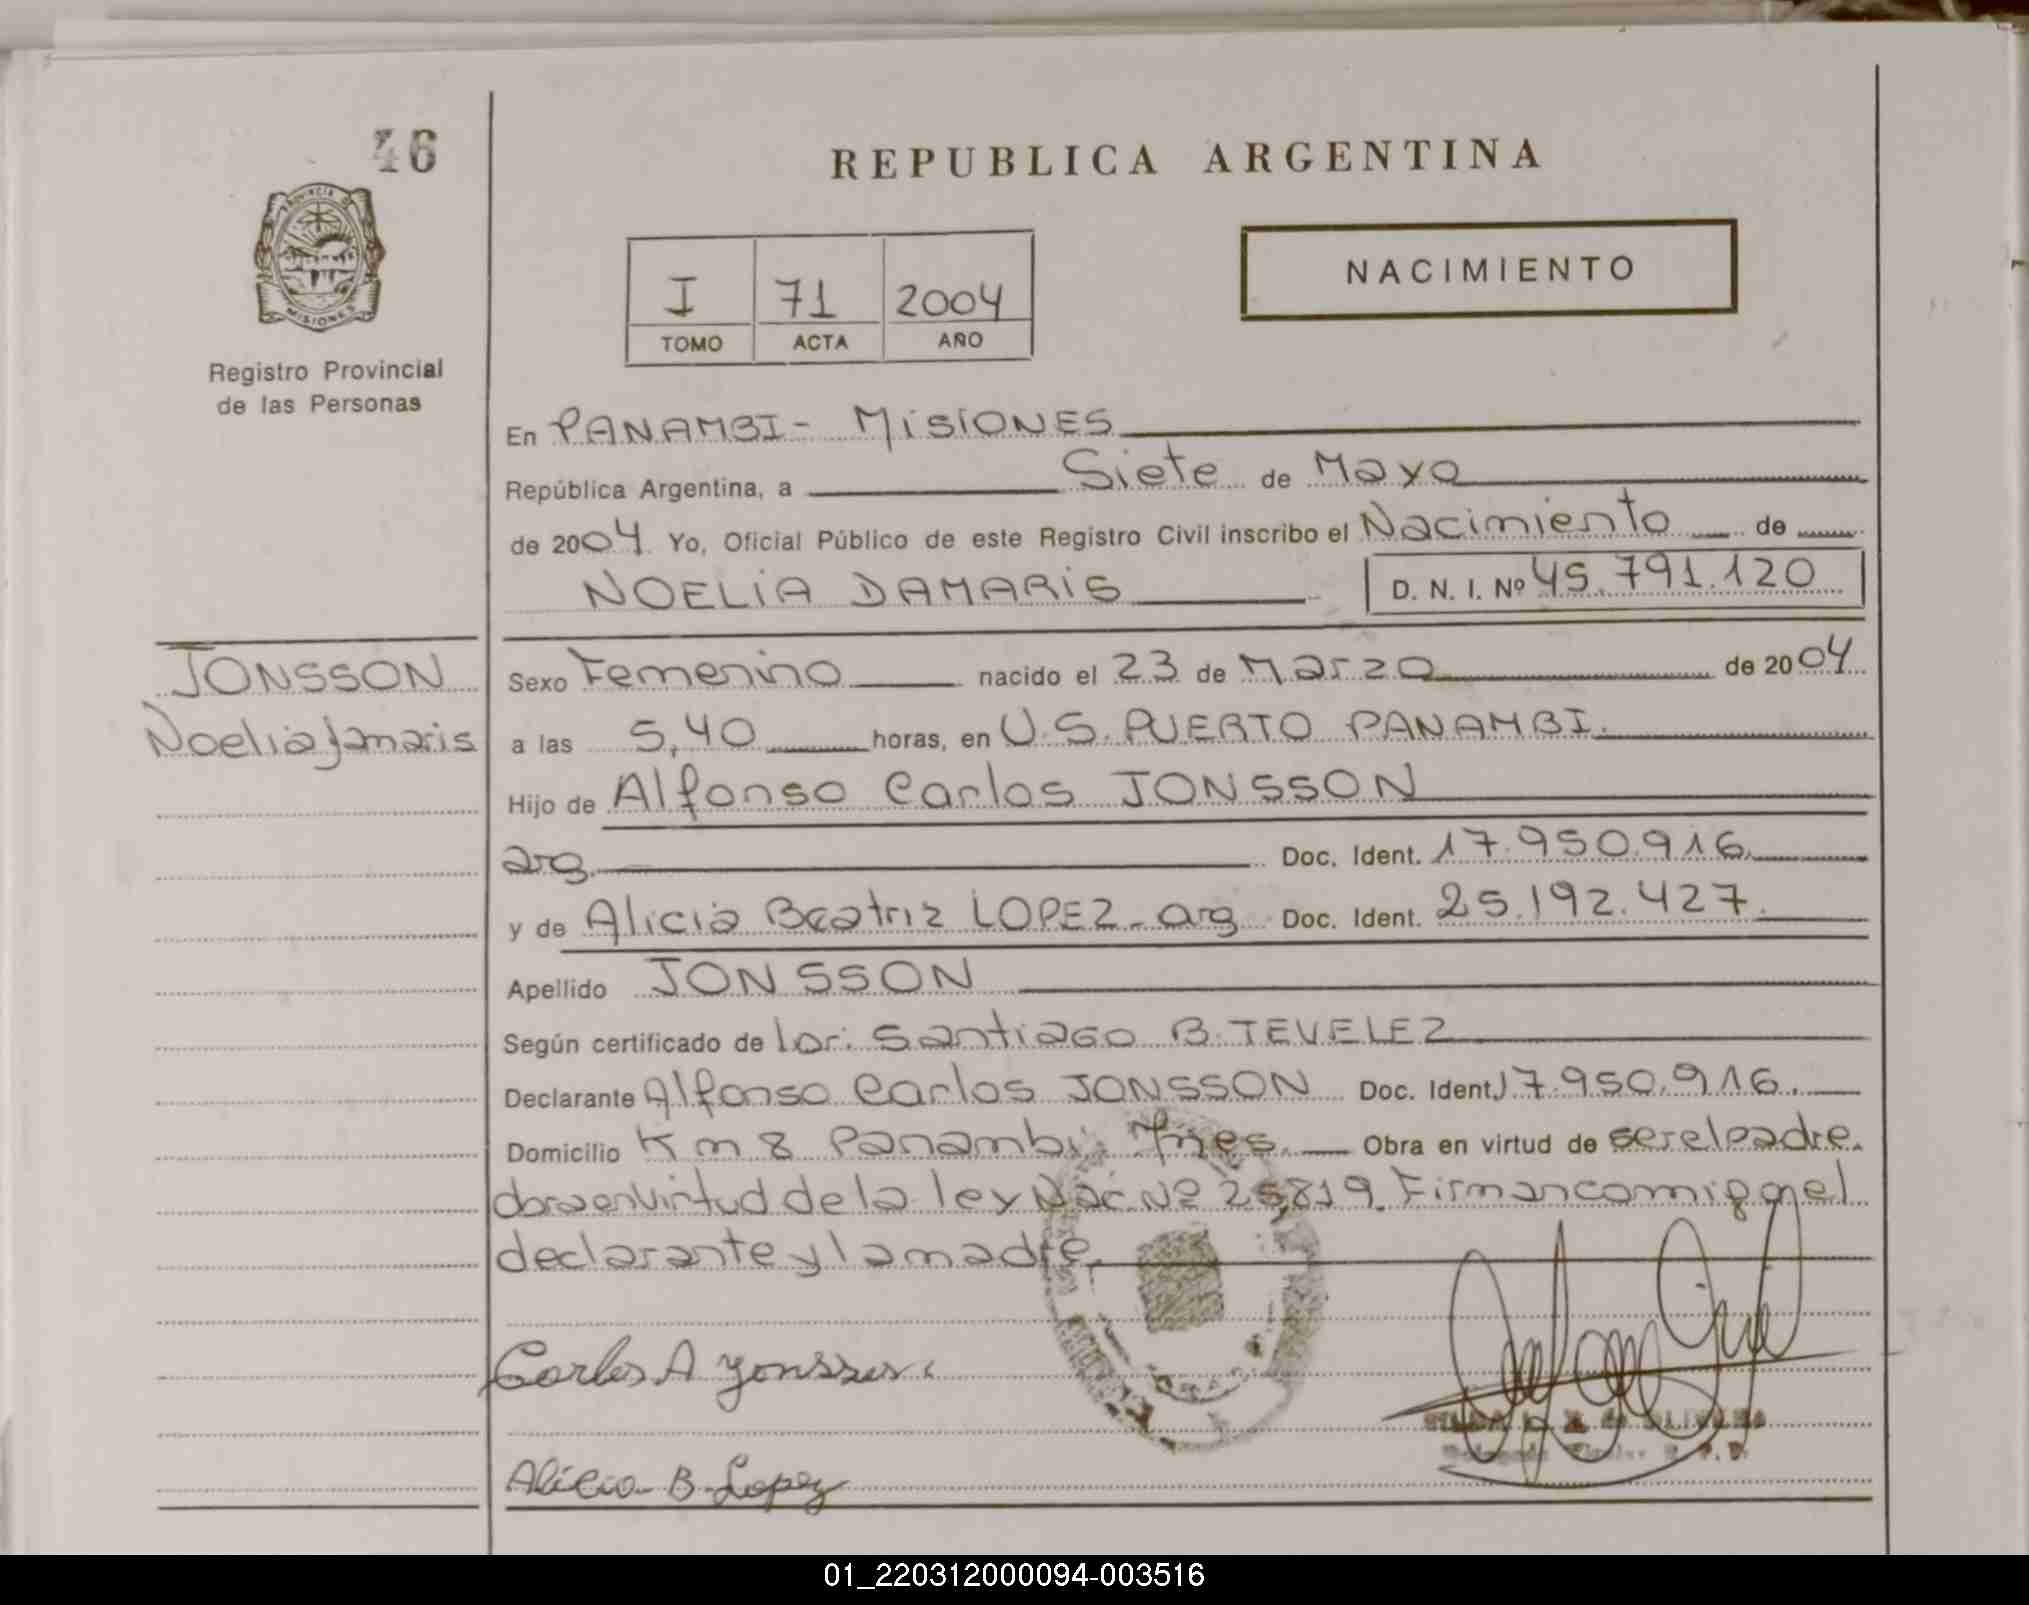 46
REPUBLICA ARGENTINA
PROVINCIA DE
MISIONES
Registro Provincial
de las Personas
I 71 2004
TOMO ACTA AÑO
NACIMIENTO
En PANAMBI- MISIONES
República Argentina, a Siete de Mayo
de 2004 Yo, Oficial Público de este Registro Civil inscribo el Nacimiento de
NOELIA DAMARIS D. N. I. Nº 45.791.120
JONSSON
Noelia Damaris
Sexo Femenino nacido el 23 de Marzo de 2004
a las 5,40 horas, en U.S. PUERTO PANAMBI.
Hijo de Alfonso Carlos JONSSON
arg. Doc. Ident. 17.950.916.
y de Alicia Beatriz LOPEZ- arg Doc. Ident. 25.192.427.
Apellido JONSSON
Según certificado de Santiago B. TEVELEZ
Declarante Alfonso Carlos JONSSON Doc. Ident. 17.950.916.
Domicilio Km 8 Panambi Mnes. Obra en virtud de ser el padre.
obra en virtud de la ley Nac. Nº 25,819. Firman comigo el
declarante y la madre.
Carlos A Jonsson.
Alicia B. Lopez
de OLIVERA
01_220312000094-003516